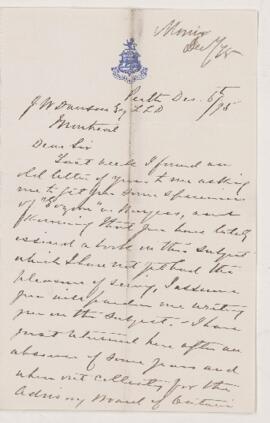 Morris
Dec 6/75
Perth Dec. 6th/75
J W Dawson Esq LLD
Montreal
Dear Sir
Last week I found an
old letter of yours to me asking
me to get you some specimens
of "Eozoon" in Burgess, and
learning that you have lately
issued a book on this subject
which I have not yet had the
pleasure of seeing, I assume
you will pardon me writing
you on the subject. - I have
just returned here after an
absence of some years and
when out collecting for the
Advisory Board of Ontario